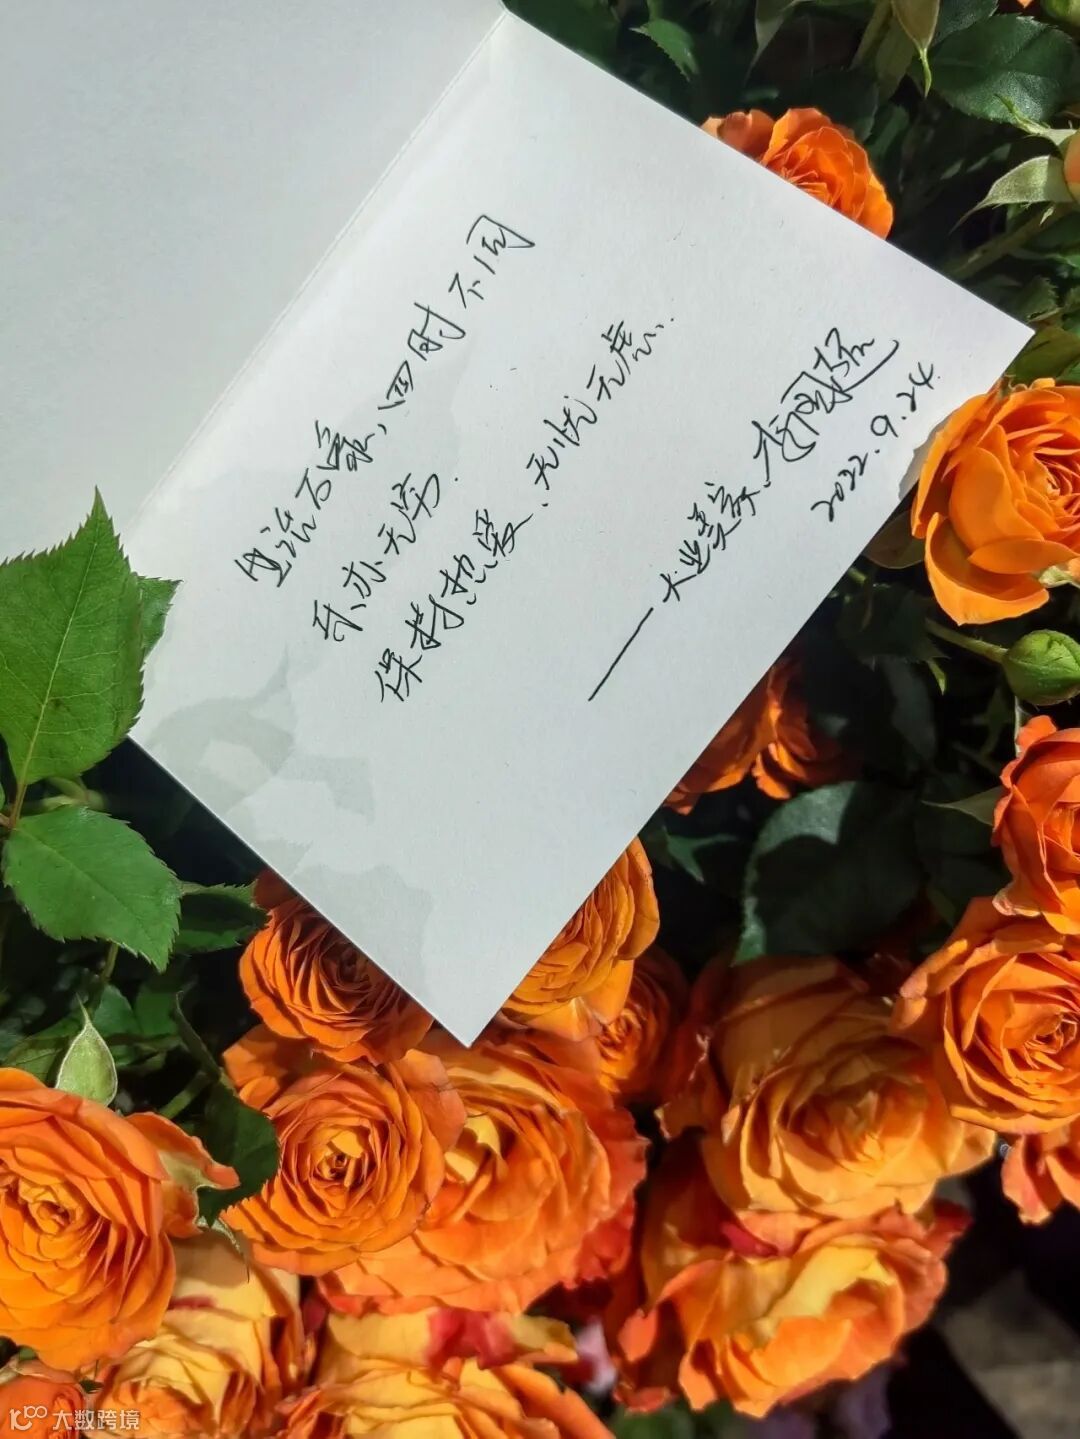 生活百最,四时不同
乐亦无穷.
保持热爱、无忧无虑.
——大业美家、
2022.9.24.
大数跨境